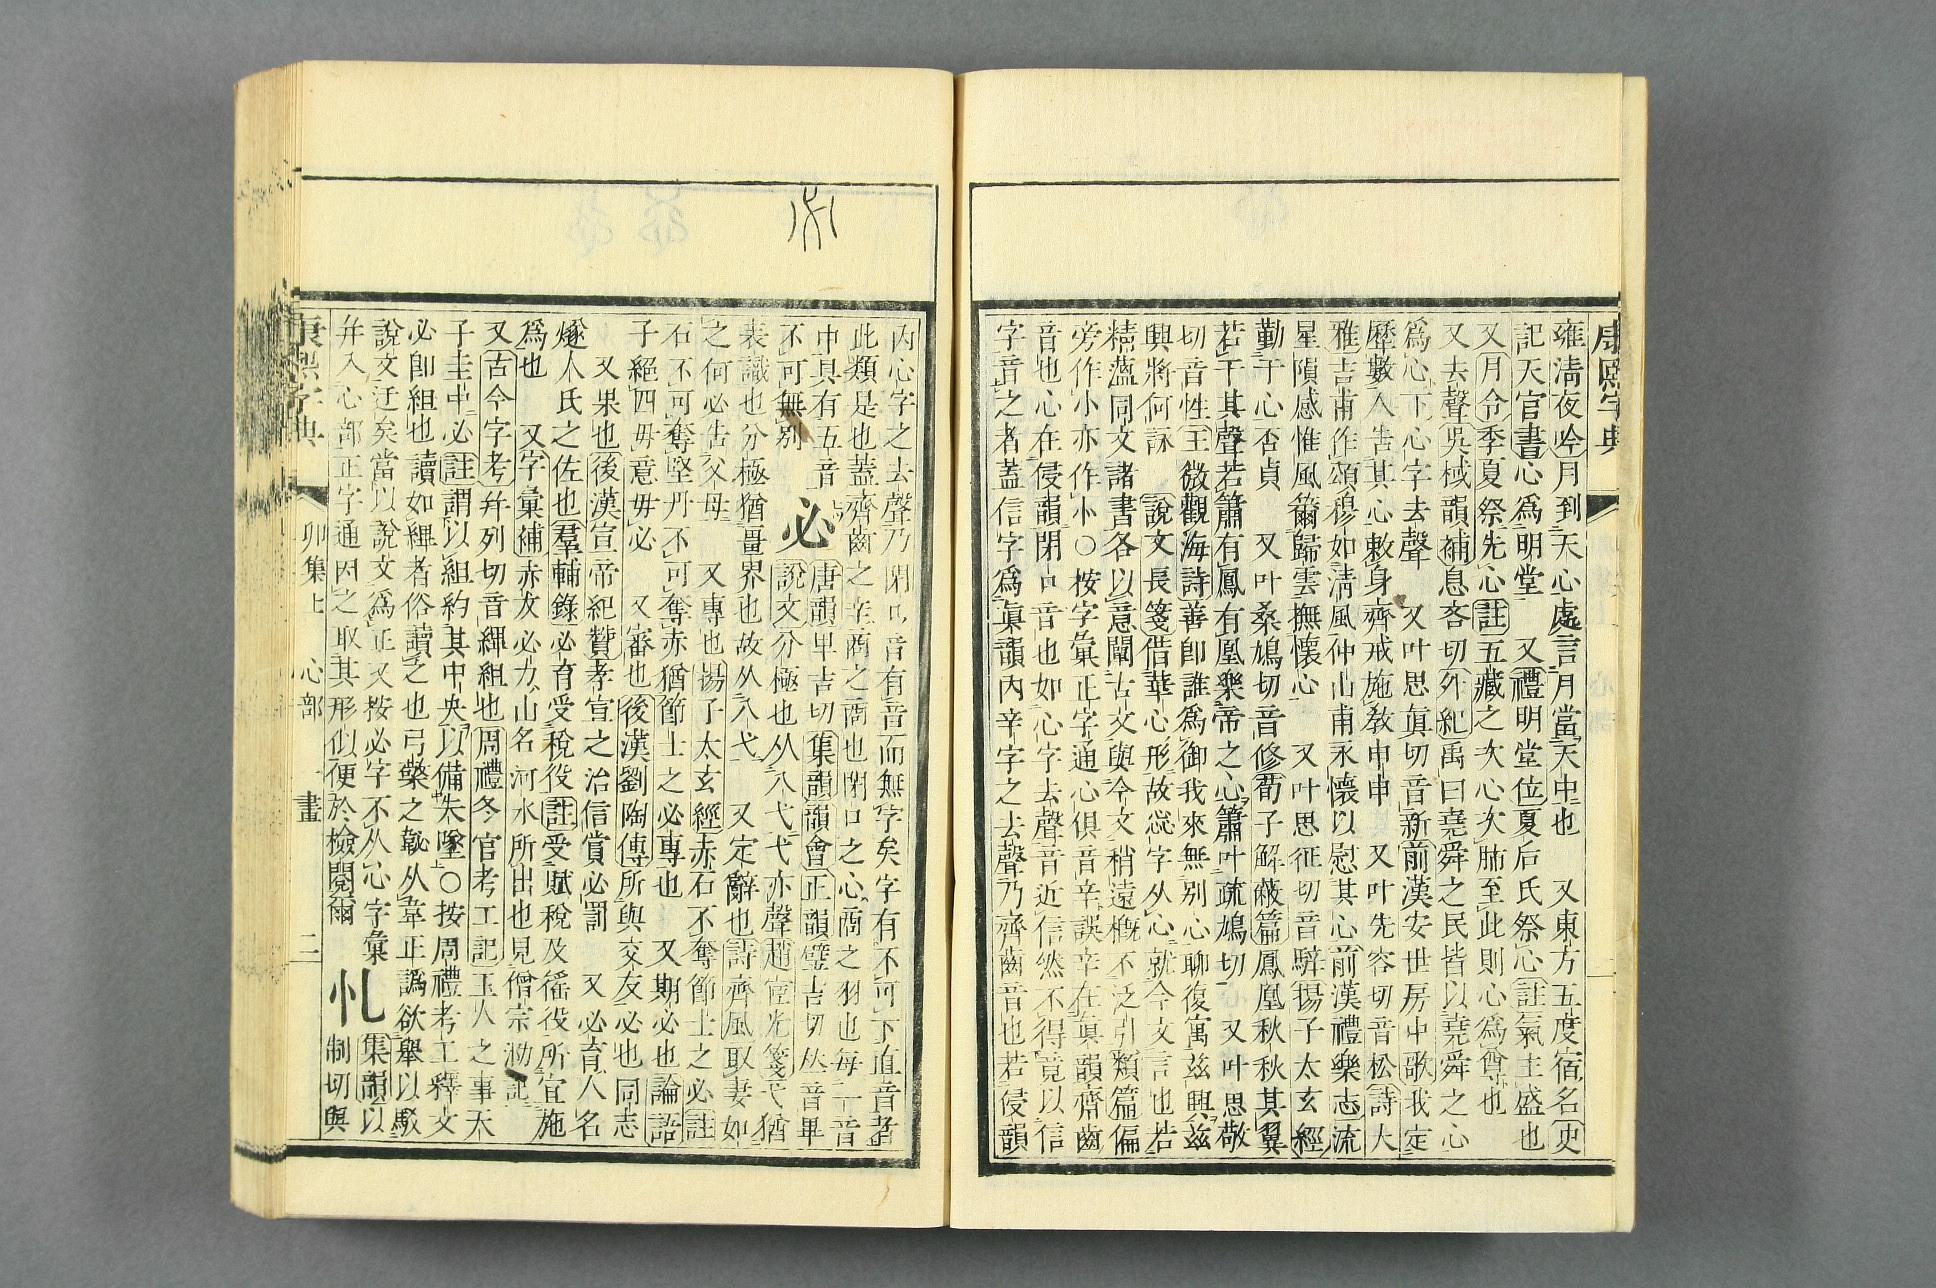 康熙字典
雍淸夜吟月到天心處言月當天中也　又東方五度宿名史
記天官書心爲明堂　又禮明堂位夏后氏祭心註氣主盛也
又月令季夏祭先心註五藏之次心次肺至此則心爲尊也
又去聲吳棫韻補息吝切外紀禹曰堯舜之民皆以堯舜之心
爲心下心字去聲　又叶思眞切音新前漢安世房中歌我定
歷數人告其心敕身齊戒施敎申申　又叶先容切音松詩大
雅吉甫作頌穆如淸風仲山甫永懷以慰其心前漢禮樂志流
星隕感惟風籋歸雲撫懷心　又叶思征切音騂揚子太玄經
勤于心否貞　又叶桑鳩切音修荀子解蔽篇鳳凰秋秋其翼
若干其聲若簫有鳳有凰樂帝之心簫叶疏鳩切　又叶思敬
切音性王微觀海詩善卽誰爲御我來無別心聊復寓玆興玆
興將何詠　說文長箋借華心形故惢字从心就今文言也若
精薀同文諸書各以意闡古文與今文稍遠槪不泛引類篇偏
旁作小亦作㣺○按字彙正字通心俱音辛誤辛在眞韻齊齒
音也心在侵韻閉口音也如心字去聲音近信然不得竟以信
字音之者蓋信字爲眞韻內辛字之去聲乃齊齒音也若侵韻
內心字之去聲乃閉口音有音而無字矣字有不可下直音者
此類是也蓋齊齒之辛商之商也閉口之心商之羽也每一音
中具有五音
不可無別
必
唐韻𤰞吉切集韻韻會正韻璧吉切𠀤音畢
說文分極也从八弋弋亦聲趙宧光箋弋猶
表識也分極猶畺界也故从八弋　又定辭也詩齊風取妻如
之何必告父母　又專也揚子太玄經赤石不奪節士之必註
石不可奪堅丹不可奪赤猶節士之必專也　又期必也論語
子絕四毋意毋必　又審也後漢劉陶傳所與交友必也同志
又果也後漢宣帝紀贊孝宣之治信賞必罰　又必育人名
燧人氏之佐也羣輔錄必育受稅役註受賦稅及徭役所宜施
爲也　又字彙補赤犮必力山名河水所出也見僧宗泐記
又古今字考𠀤列切音繟組也周禮冬官考工記玉人之事天
子圭中必註謂以組約其中央以備失墜○按周禮考工釋文
必卽組也讀如繟者俗讀之也弓檠之䪐从韋正譌欲舉以駁
說文迂矣當以說文爲正又按必字不从心字彙
幷入心部正字通因之取其形似便於檢閱爾
忆
集韻以
制切與
康熙字典
卯集上
心部
一畫
二